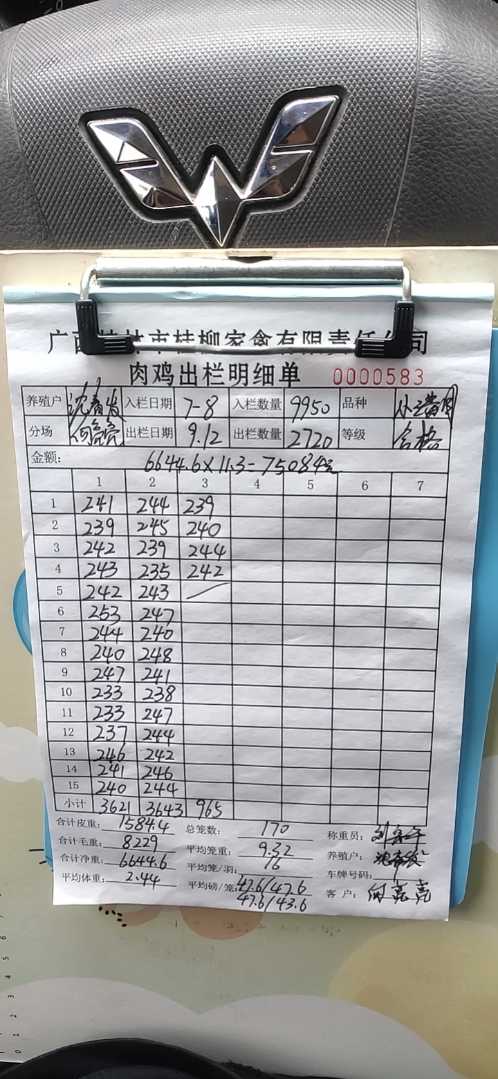 广西桂林市桂柳家禽有限责任公司
肉鸡出栏明细单 0000583
养殖户 入栏日期 7-8 入栏数量 9950 品种
分场 向亮亮 出栏日期 9.12 出栏数量 2720 等级 合格
金额: 6644.6×11.3=75084元
1 2 3 4 5 6 7
1 241 244 239
2 239 245 240
3 242 239 244
4 243 235 242
5 242 243
6 253 247
7 244 240
8 240 248
9 247 241
10 233 238
11 233 247
12 237 244
13 246 242
14 241 246
15 240 244
小计 3621 3643 965
合计皮重: 1584.4 总笼数: 170 称重员:
合计毛重: 8229 平均笼重: 9.32 养殖户:
合计净重: 6644.6 平均笼/羽: 16 车牌号码:
平均体重: 2.44 平均磅/笼: 47.6/47.6 客户: 向亮亮
47.6/43.6